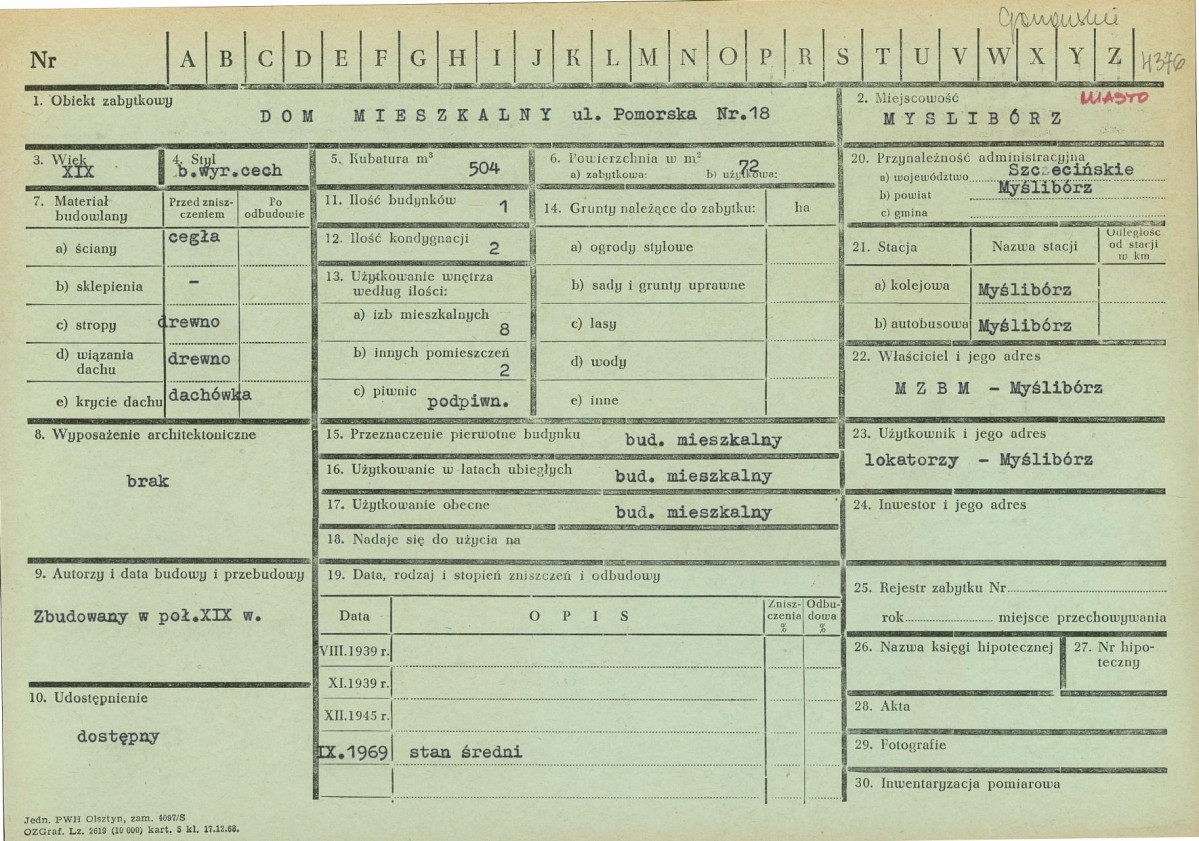 Nr A B C D E F G H I J K L M N O P R S T U V W X Y Z 4376
1. Obiekt zabytkowy
DOM MIESZKALNY ul. Pomorska Nr.18
2. Miejscowość MIASTO
MYSLIBÓRZ
3. Wiek
XIX
4. Styl
b.wyr.cech
5. Kubatura m³
504
6. Powierzchnia w m²
72
a) zabytkowa: b) użytkowa:
20. Przynależność administracyjna
a) województwo Szczecińskie
b) powiat Myślibórz
c) gmina
7. Materiał budowlany
Przed znisz-
czeniem
Po
odbudowie
a) ściany cegła
b) sklepienia –
c) stropy drewno
d) wiązania
dachu drewno
e) krycie dachu dachówka
11. Ilość budynków 1
12. Ilość kondygnacji 2
13. Użytkowanie wnętrza
według ilości:
a) izb mieszkalnych
8
b) innych pomieszczeń
2
c) piwnic podpiwn.
14. Grunty należące do zabytku: ha
a) ogrody stylowe
b) sady i grunty uprawne
c) lasy
d) wody
e) inne
21. Stacja Nazwa stacji
Odległość
od stacji
w km
a) kolejowa Myślibórz
b) autobusowa Myślibórz
22. Właściciel i jego adres
M Z B M – Myślibórz
8. Wyposażenie architektoniczne
brak
15. Przeznaczenie pierwotne budynku bud. mieszkalny
16. Użytkowanie w latach ubiegłych bud. mieszkalny
17. Użytkowanie obecne bud. mieszkalny
18. Nadaje się do użycia na
23. Użytkownik i jego adres
lokatorzy – Myślibórz
24. Inwestor i jego adres
9. Autorzy i data budowy i przebudowy
Zbudowany w poł.XIX w.
10. Udostępnienie
dostępny
19. Data, rodzaj i stopień zniszczeń i odbudowy
Data O P I S
Znisz-
czenia
%
Odbu-
dowa
%
VIII.1939 r.
XI.1939 r.
XII.1945 r.
IX.1969 stan średni
25. Rejestr zabytku Nr
rok miejsce przechowywania
26. Nazwa księgi hipotecznej
27. Nr hipo-
teczny
28. Akta
29. Fotografie
30. Inwentaryzacja pomiarowa
Jedn. PWH Olsztyn, zam. 4097/S
OZGraf. Lz. 2619 (10 000) kart. 5 kl. 17.12.68.